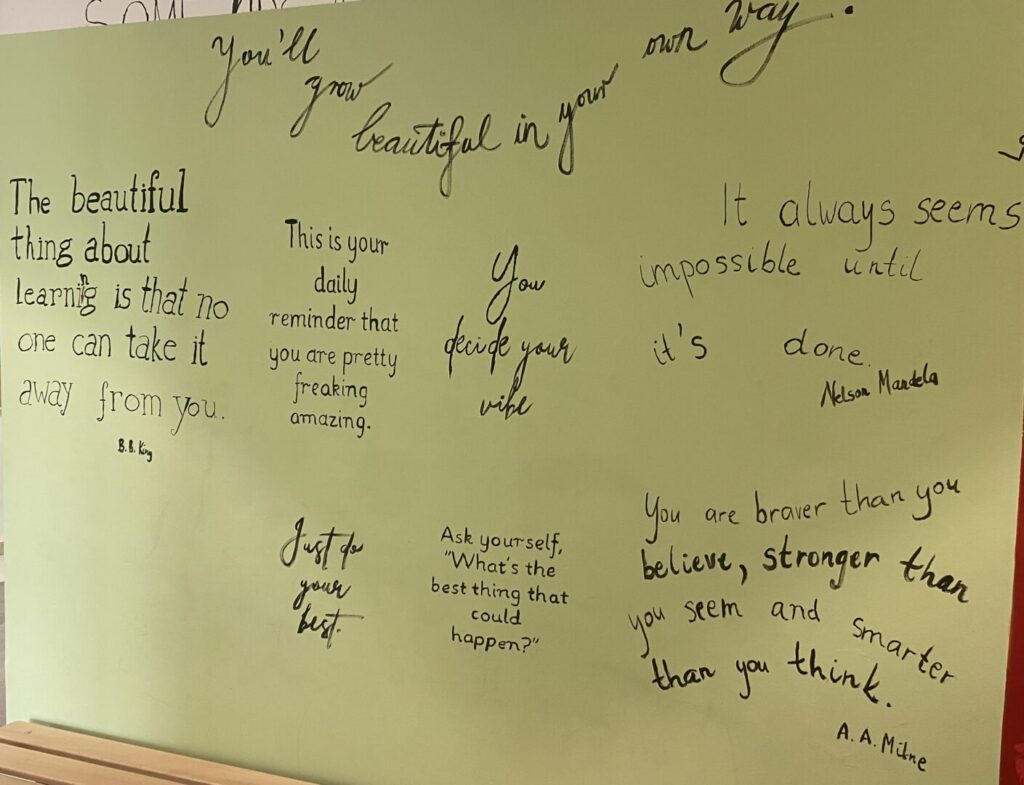 You'll
grow
beautiful in your own way.
The beautiful
thing about
learning is that no
one can take it
away from you.
B.B. King
This is your
daily
reminder that
you are pretty
freaking
amazing.
You
decide your
vibe
It always seems
impossible until
it's done.
Nelson Mandela
Just do
your
best.
Ask yourself,
"What's the
best thing that
could
happen?"
You are braver than you
believe, stronger than
you seem and smarter
than you think.
A. A. Milne